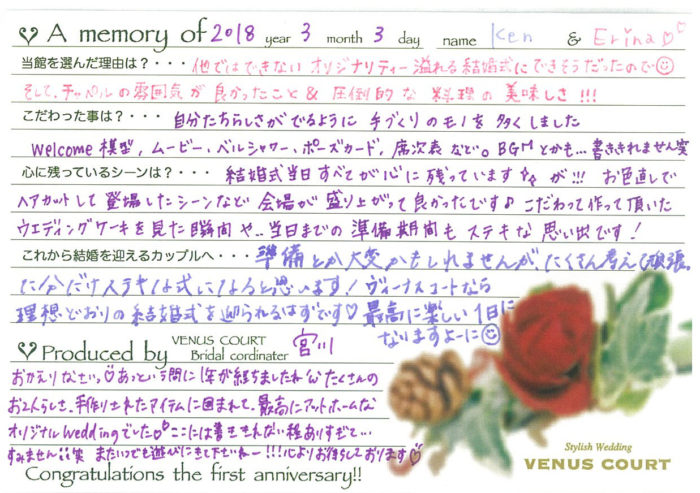 A memory of 2018 year 3 month 3 day name Ken & Erina
当館を選んだ理由は？・・・他ではできない オリジナリティー溢れる結婚式にできそうだったので
そして、チャペルの雰囲気が良かったこと & 圧倒的な 料理の美味しさ!!!
こだわった事は？・・・自分たちらしさがでるように 手づくりのモノを多くしました
Welcome模型、ムービー、ベルシャワー、ポーズカード、席次表などなど。BGMとかも…書ききれません笑
心に残っているシーンは？・・・結婚式当日すべてが心に残っていますが!!! お色直しで
ヘアカットして登場したシーンなど 会場が盛り上がって良かったです♪ こだわって作って頂いた
ウエディングケーキを見た瞬間や、当日までの準備期間もステキな思い出です!
これから結婚を迎えるカップルへ・・・準備とか大変かもしれませんが、たくさん考えて頑張っ
た分だけステキな式になると思います! ヴィーナスコートなら
理想どおりの結婚式を迎られるはずです♡ 最高に楽しい1日に
なりますよーに
Produced by VENUS COURT Bridal cordinater 宮川
おかえりなさい♡あっという間に1年が経ちましたね たくさんの
お2人らしさ、手作りされたアイテムに囲まれて、最高にアットホームな
オリジナルweddingでした♡ ここには書ききれない程ありすぎて…
すみません 笑 またいつでも遊びにきて下さいねー!!!心よりお待ちしております♡
Congratulations the first anniversary!!
Stylish Wedding
VENUS COURT